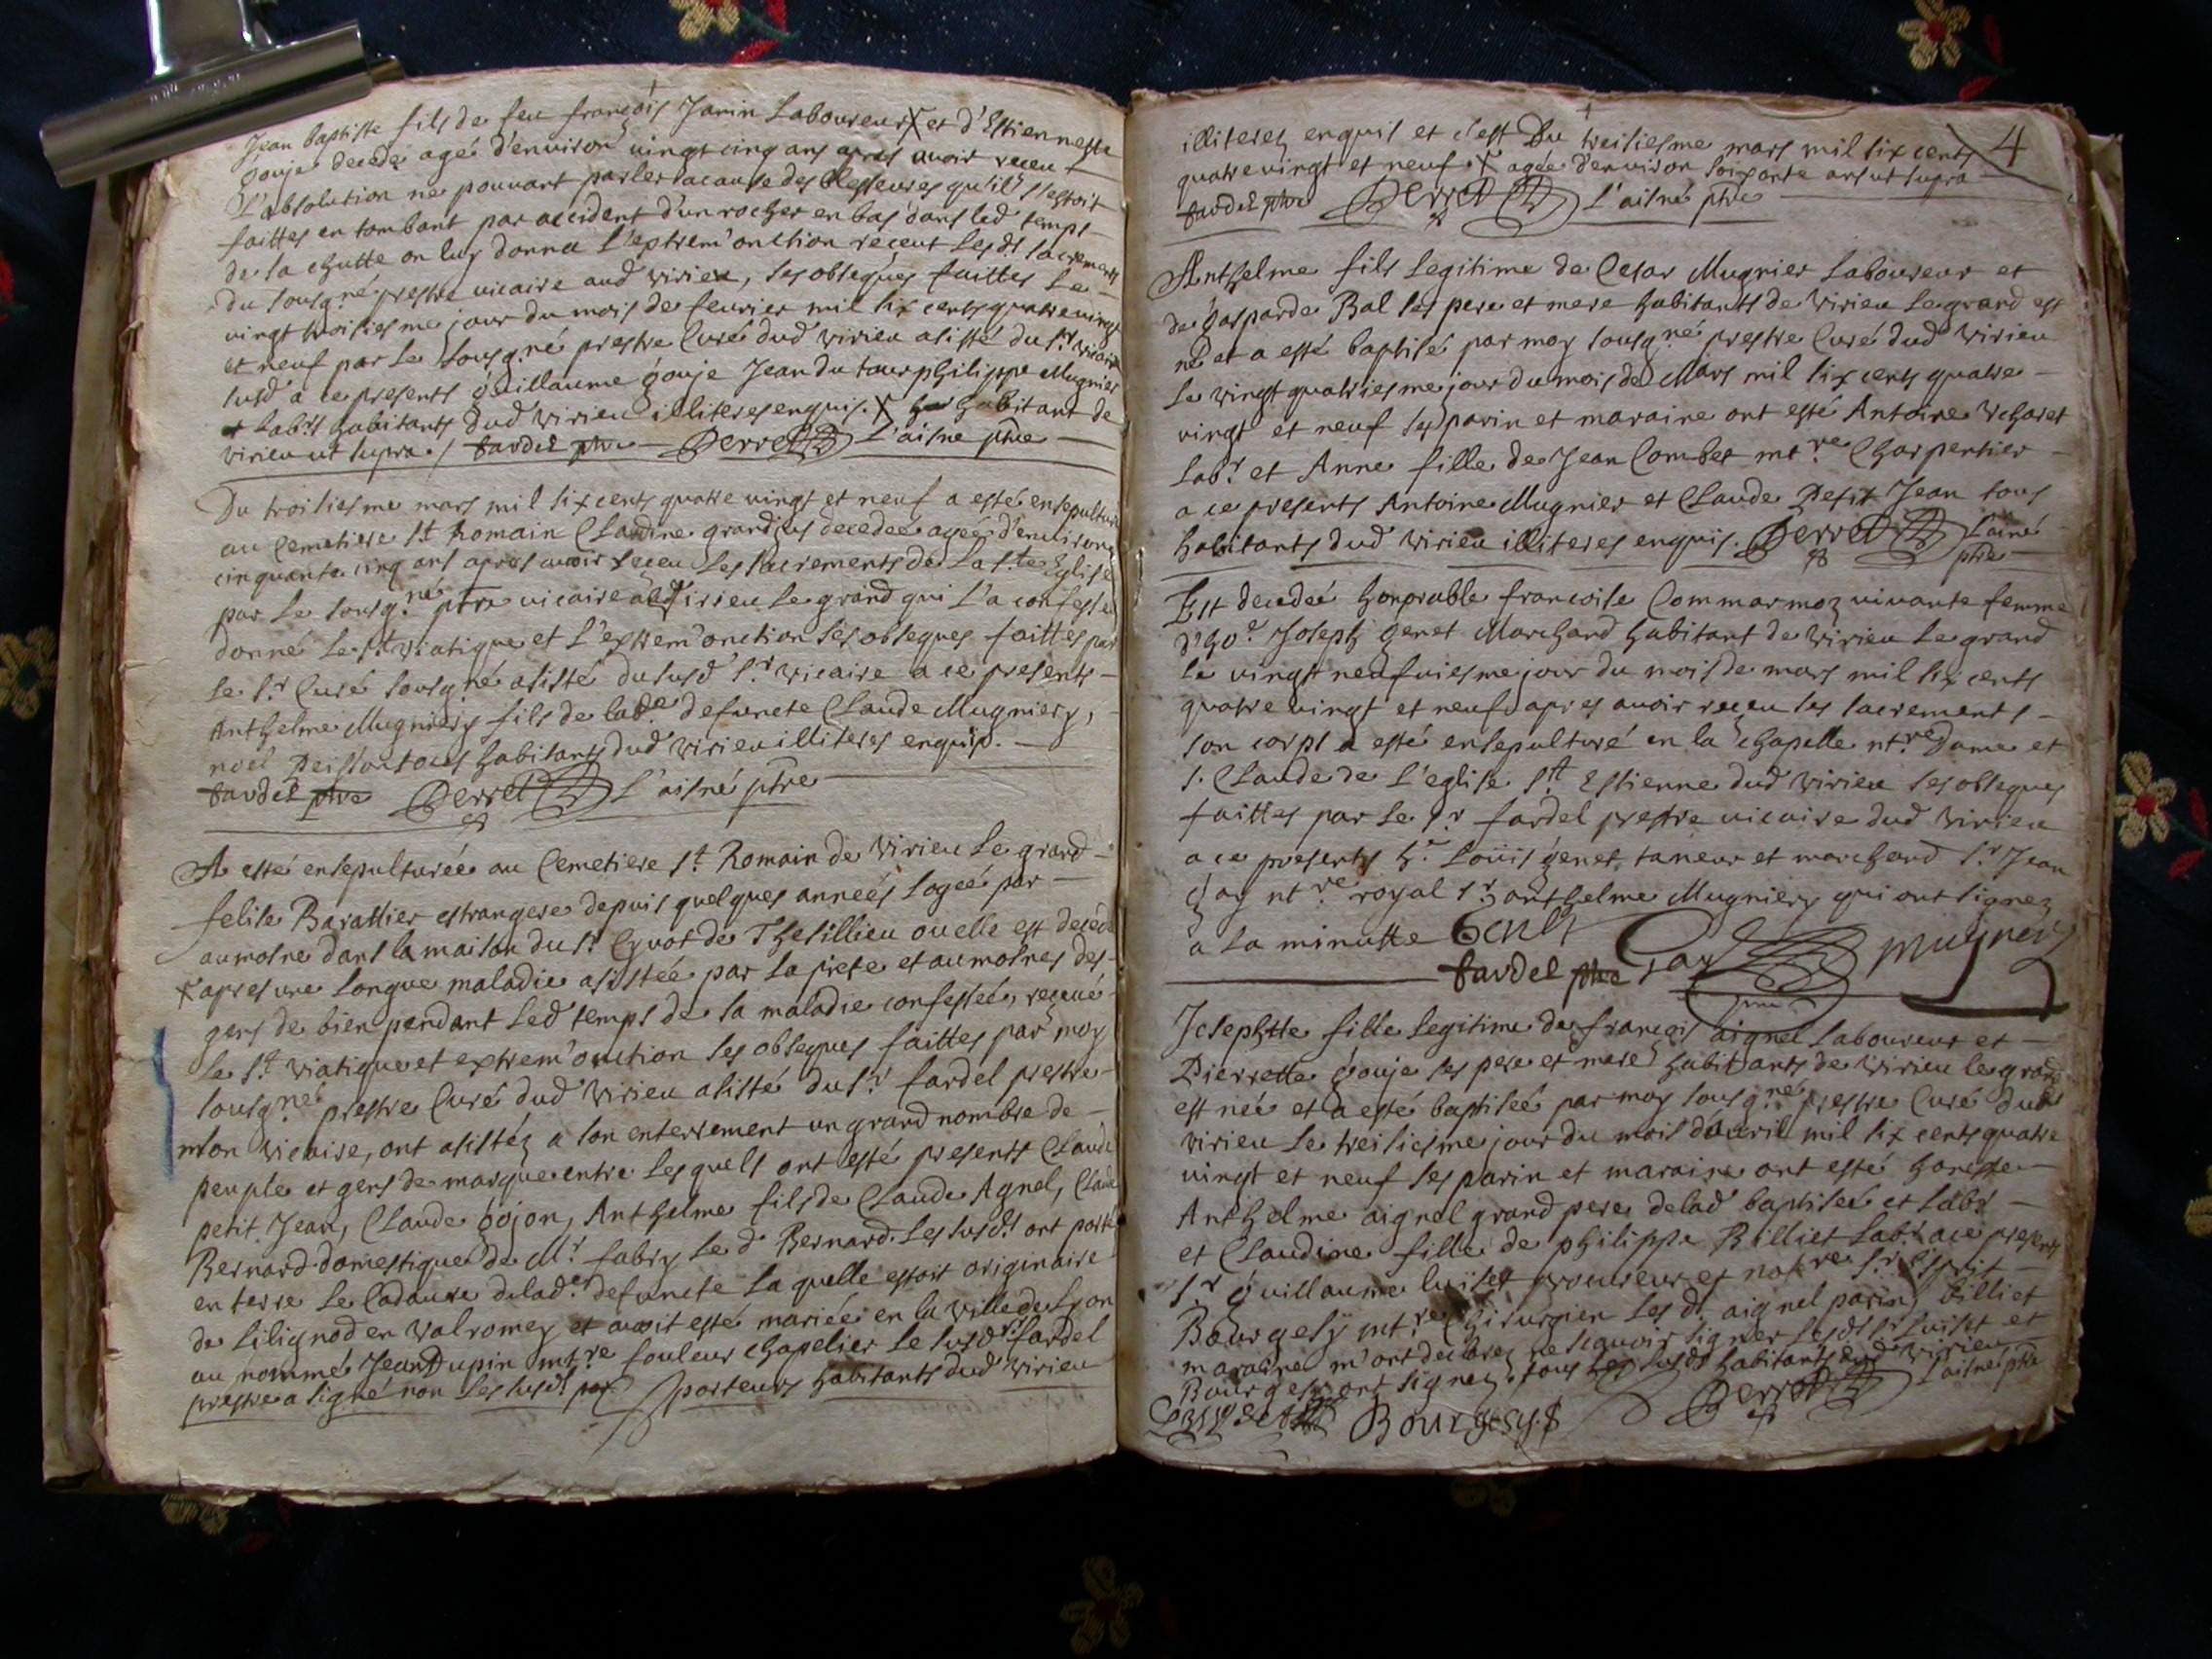 Jean baptiste fils de feu françois Janin Laboureur X et d'Estiennette
gouje decedé agé d'environ vingt cinq ans apres avoir receu
L'absolution ne pouvant parler a cause des blesseures qu'il s'estoit
faittes en tombant par accident d'un rocher en bas dans led temps
de sa chutte on luy donna L'extrem'onction receut lesdt sacrements
du sousgné prestre vicaire aud Virieu, ses obseques faittes Le
vingt troisiesme jour du mois de feuvrier mil six cents quatre vingt
et neuf par Le sousgné prestre Curé dud Virieu asisté du sr vicaire
susd a ce presents guillaume gouje Jean du tour philippe Mugnier
labrs habitants dud Virieu illiteres enquis. X habitant de
Virieu ut supra ./ fardel ptre Perret L'aisné ptre
Du troisiesme mars mil six cents quatre vingt et neuf a esté ensepulturé
au Cemetiere st Romain Claudine decedeé ageé d'environ
cinquante cinq ans apres avoir receu Les sacrements de La ste Eglise
par Le sousgné ptre vicaire de Virieu Le grand qui L'a confesse
donné Le st Viatique et L'extrem'onction ses obseques faittes par
Le sr Curé sousgné asisté du susd sr vicaire a ce presents
Anthelme Mugniery fils de lade defuncte Claude Mugniery,
noel tous habitants dud Virieu illiteres enquis.
fardel ptre Perret L'aisné ptre
A esté ensepultureé au Cemetiere st Romain de Virieu Le grand
felise Barattier estrangere depuis quelques anneés Logeé par
aumosne dans la maison du sr Cyvot de Thesillieu ou elle est decedé
X apres une Longue maladie asisteé par La pieté et aumosnes des
gens de bien pendant Led temps de sa maladie confesseé, receué
Le st Viatique et extrem'onction ses obseques faittes par moy
sousgné prestre Curé dud Virieu asisté du sr fardel prestre
mon Vicaire, ont asistéz a son enterrement un grand nombre de
peuple et gens de marque entre Lesquels ont esté presents Claude
petit Jean, Claude gojon, Anthelme fils de Claude Agnel, Claude
Bernard domestique de Mr fabry Le d Bernard. Les susdt ont porté
en terre Le Cadavre delade defuncte La quelle estoit originaire
de Lilignod en Valromey et avoit esté marieé en la ville de Lyon
au nommé Jean Dupin mtre fouleur chapelier Le susd sr fardel
prestre a signé non Les susdt porteurs habitants dud Virieu
4
illiterez enquis et c'est Du treisiesme mars mil six cents
quatre vingt et neuf. X ageé d'environ soixante ans ut supra
fardel ptre Perret L'aisné ptre
Anthelme fils Legitime de Cesar Mugnier Laboureur et
de gasparde Bal ses pere et mere habitants de Virieu Le grand est
né et a esté baptisé par moy sousgné prestre Curé dud Virieu
Le vingt quatriesme jour du mois de Mars mil six cents quatre
vingt et neuf ses parin et maraine ont esté Antoine
Labr et Anne fille de Jean Combet mtre Charpentier
a ce presents Antoine Mugnier et Claude Petit Jean tous
habitants dud Virieu illiteres enquis. Perret L'aisné
ptre
Est decedeé honorable francoise Commarmoz vivante femme
d'hoe Joseph genet Marchand habitant de Virieu Le grand
Le vingt neufviesme jour du mois de mars mil six cents
quatre vingt et neuf apres avoir receu ses sacrements
son corps a esté ensepulturé en la chapelle ntre Dame et
s. Claude de L'eglise st Estienne dud Virieu ses obseques
faittes par Le sr fardel prestre vicaire dud Virieu
a ce presents he Loüis genet, taneur et marchand sr Jean
gay ntre royal sr anthelme Mugniery qui ont signez
a La minutte Genet Gay Mugniery
fardel ptre
Josephtte fille Legitime de françois aignel Laboureur et
Pierrette gouje ses pere et mere habitants de Virieu Le grand
est neé et a esté baptiseé par moy sousgné prestre Curé dud
Virieu Le treisiesme jour du mois d'avril mil six cents quatre
vingt et neuf ses parin et maraine ont esté honeste
Anthelme aignel grand pere delad baptiseé et Labr
et Claudine fille de philippe Billiet Labr a ce presents
sr guillaume Luiset procureur et notre sr Esprit
Bourgesÿ mtre Chirurgien Les dt aignel parin, billiet
maraine m'ont declarez ne sçavoir signer Lesdt sr Luiset et
Bourgesy ont signez. tous Les susdt habitants dud Virieu
Bourgesy Perret L'aisné ptre